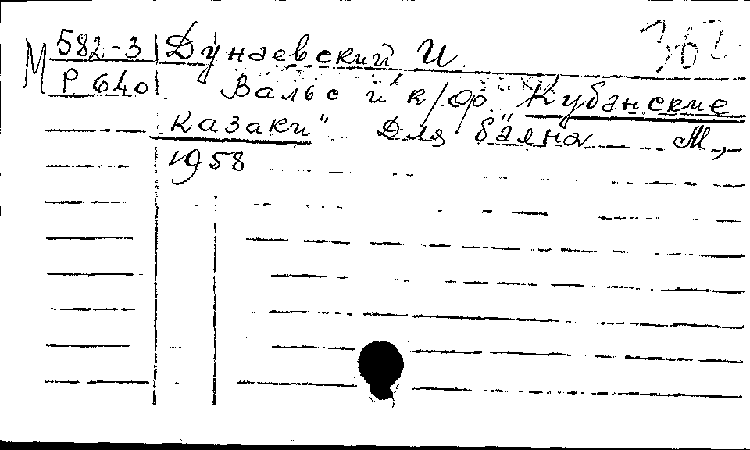 М 582-3 Дунаевский И.
Р 640 Вальс и к/ф "Кубанские
казаки" Для баяна М.,
1958